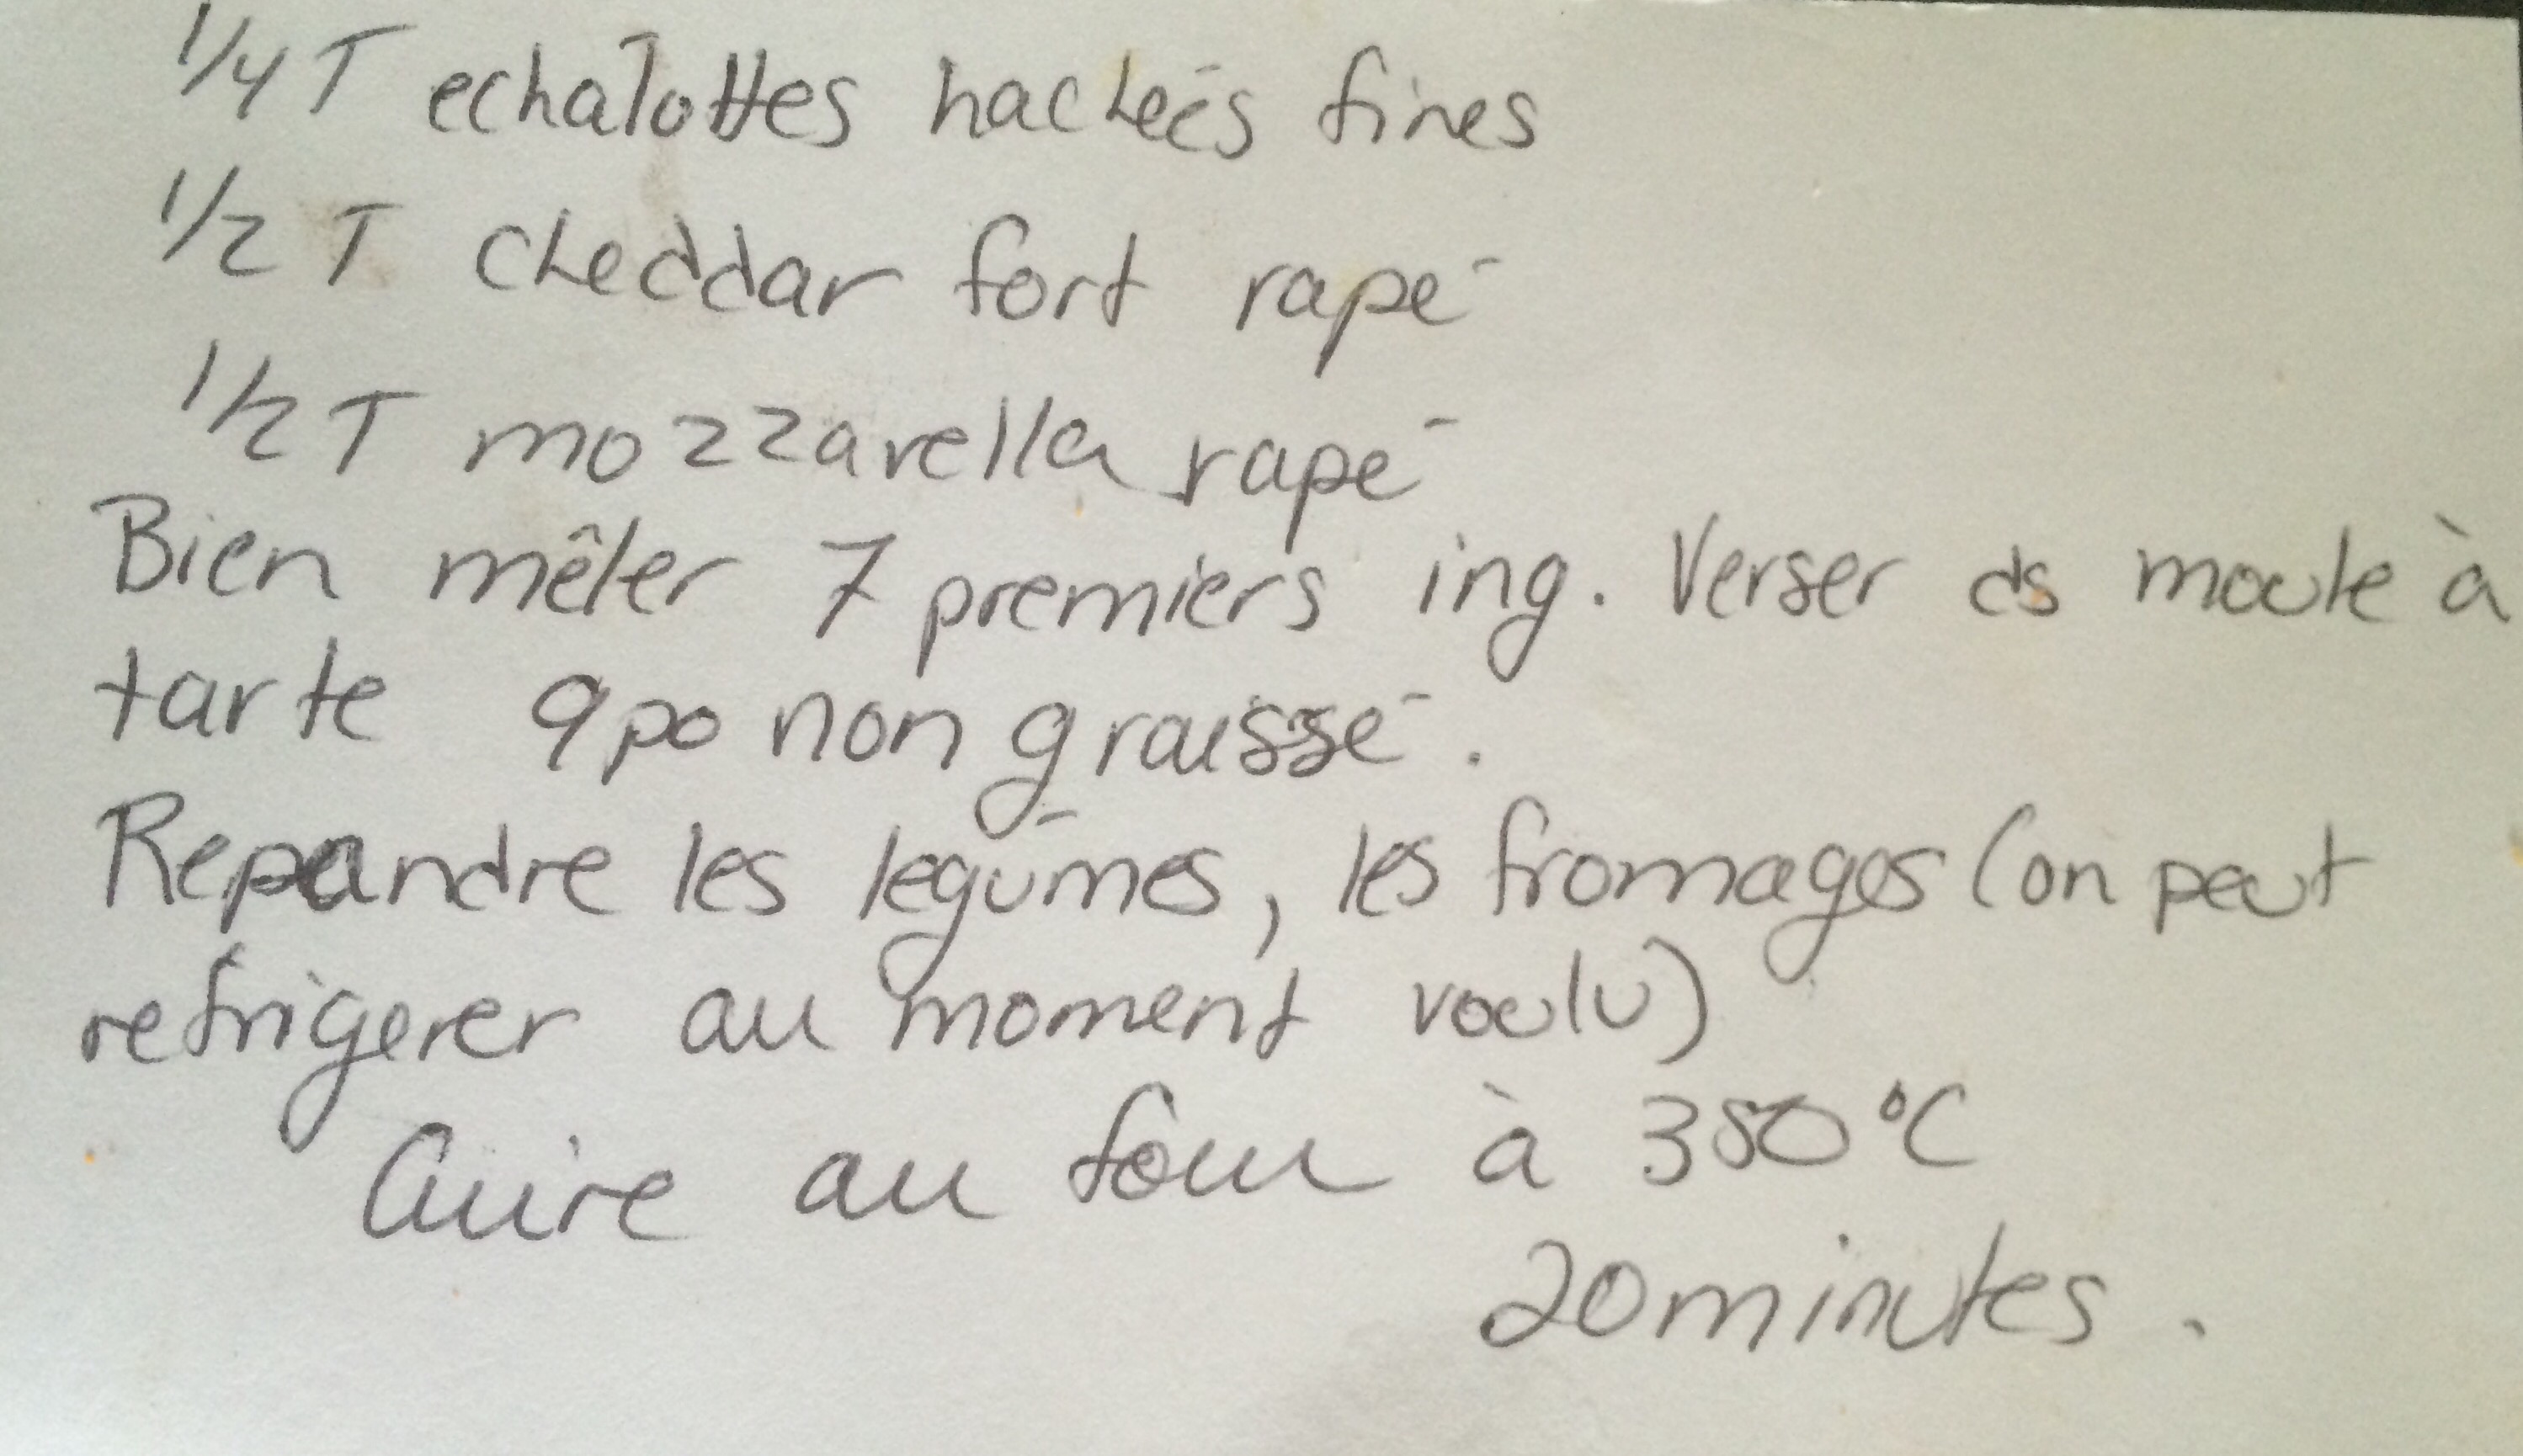 1/4 T echalottes hachées fines
1/2 T cheddar fort rapé
1/2 T mozzarella rapé
Bien mêler 7 premiers ing. Verser ds moule à
tarte 9po non graissé.
Repandre les légumes, les fromages (on peut
refrigerer au moment voulu)
Cuire au four à 350°C
20 minutes.